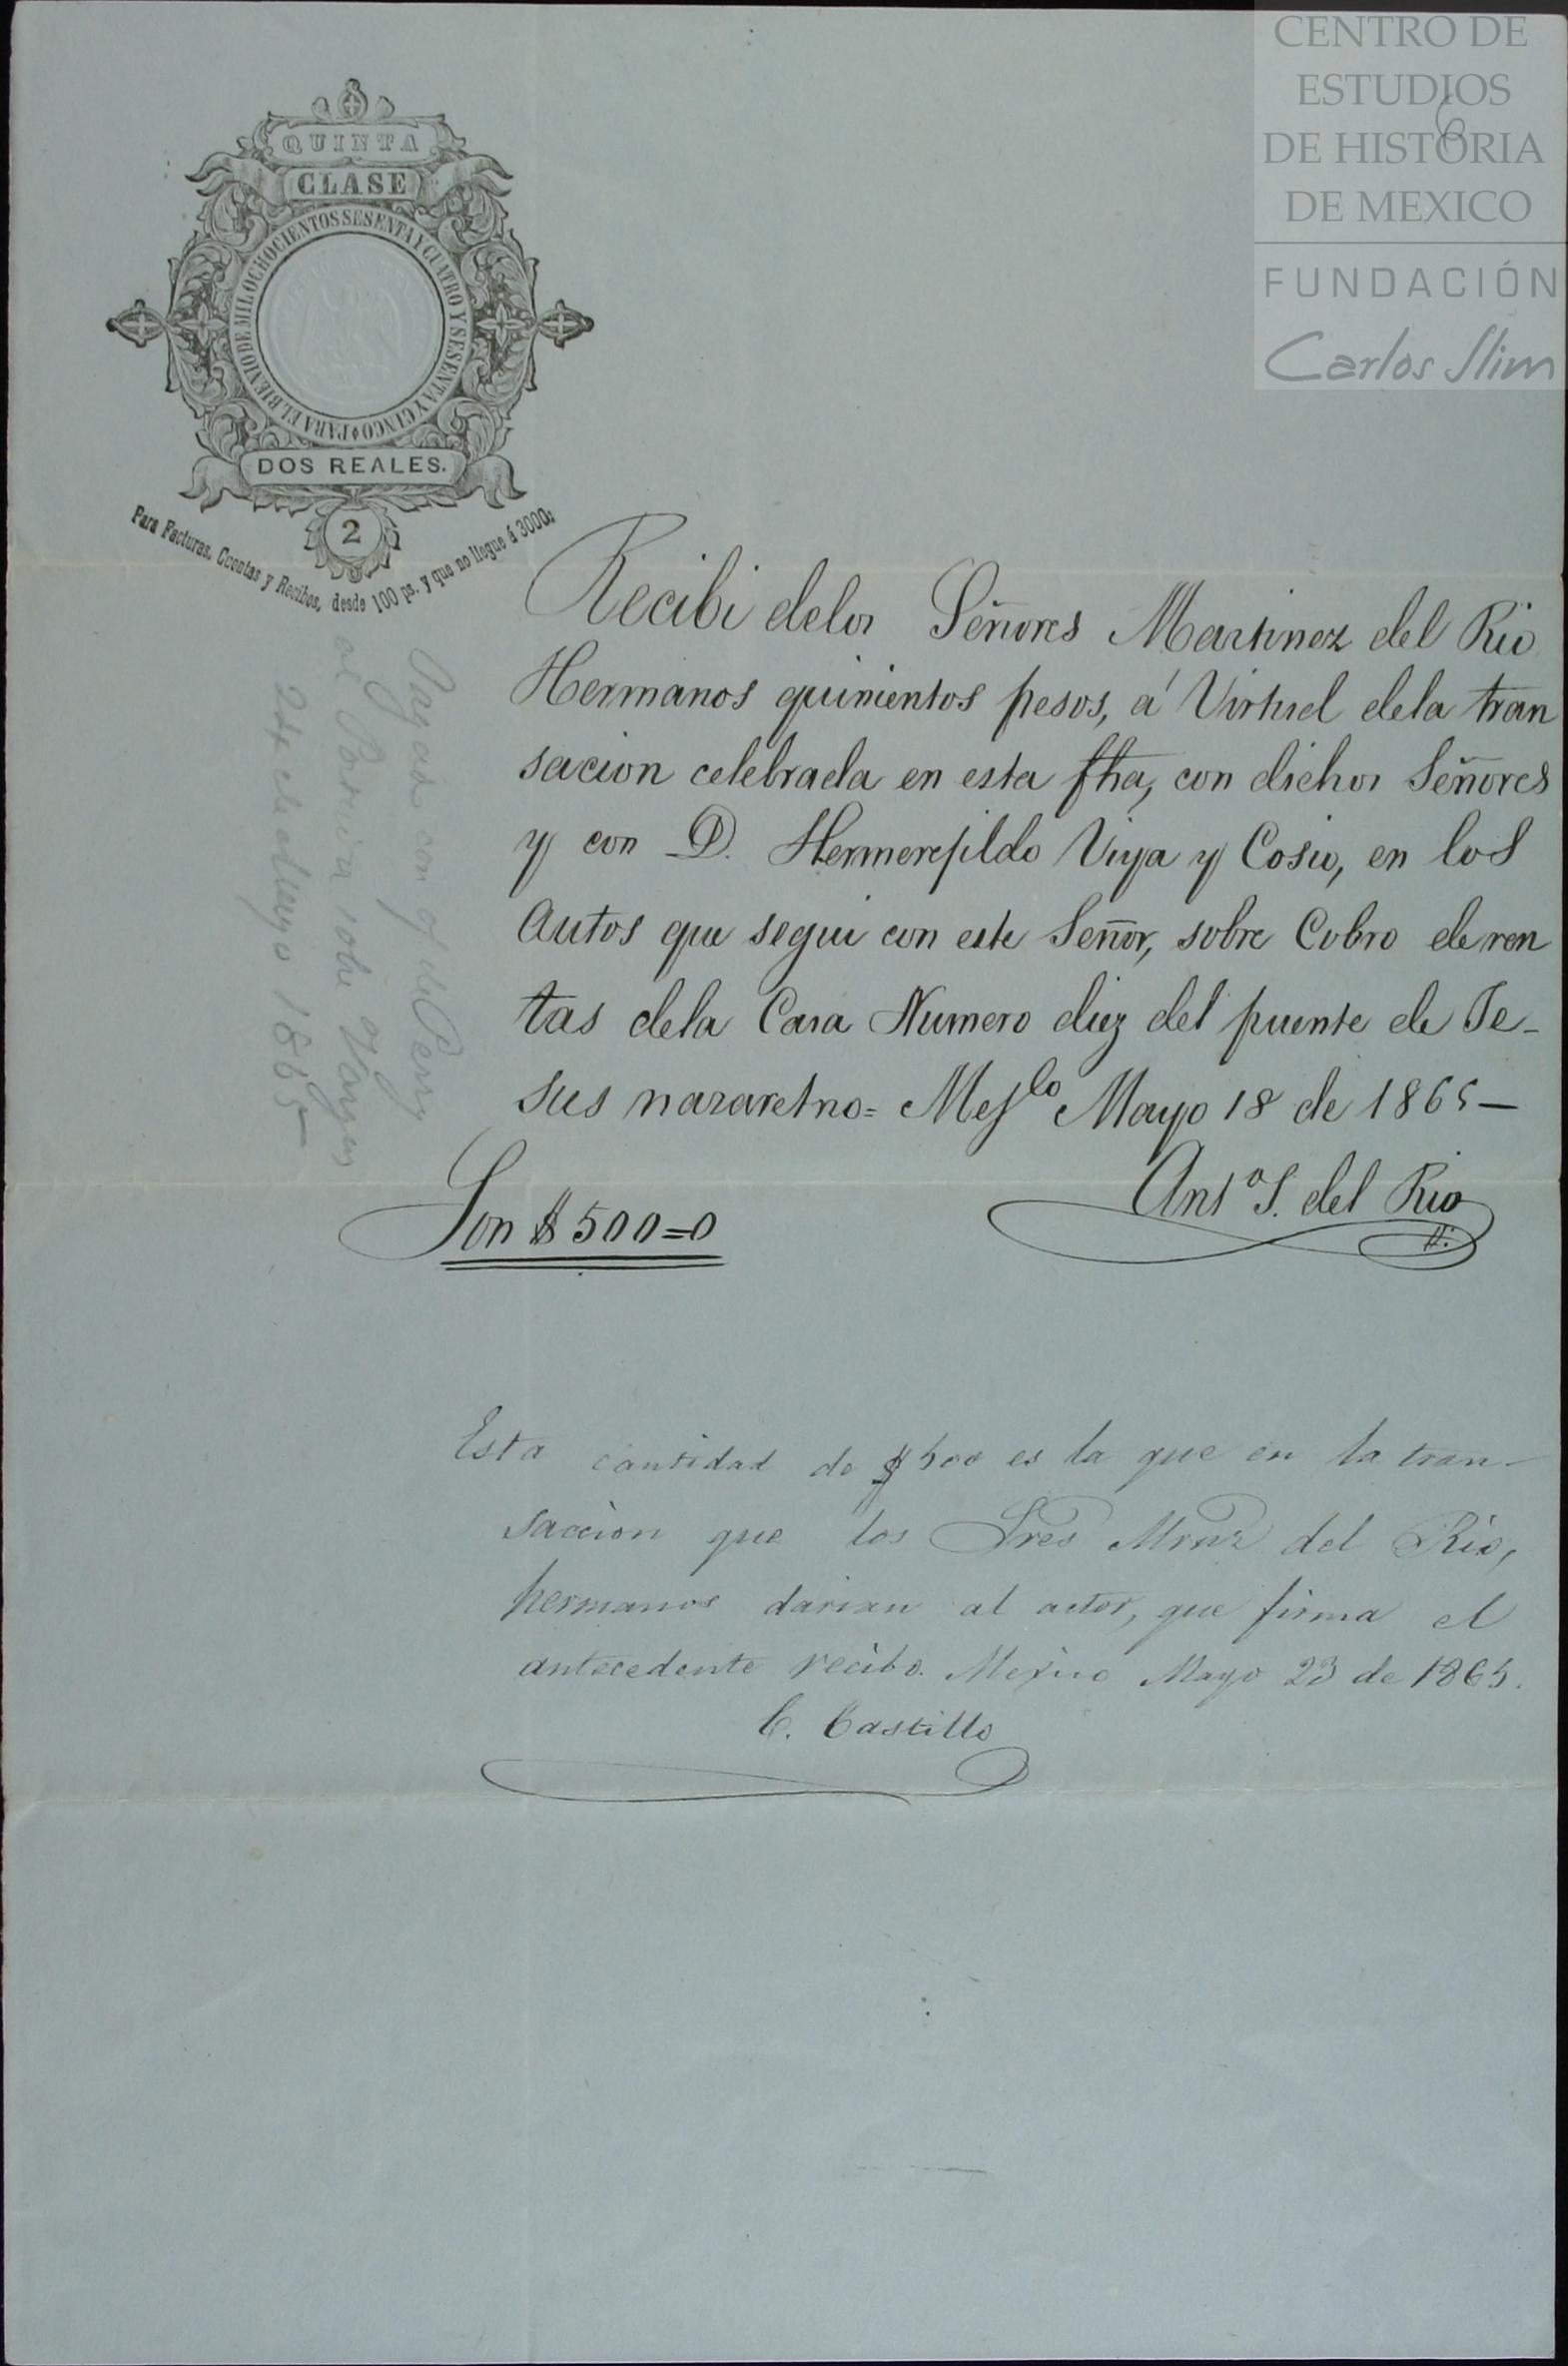 CENTRO DE
ESTUDIOS
DE HISTORIA
DE MEXICO
FUNDACIÓN
Carlos Slim
6
QUINTA
CLASE
PARA EL BIENIO DE MIL OCHOCIENTOS SESENTA Y CUATRO Y SESENTA Y CINCO
DOS REALES.
2
Para Facturas, Cuentas y Recibos, desde 100 ps. y que no llegue á 3000,,
Recibi delos Señores Martinez del Rio
Hermanos quinientos pesos, á Virtud dela tran
sacion celebrada en esta fha, con dichos Señores
y con D. Hermenejildo Viya y Cosio, en los
Autos que segui con este Señor, sobre Cobro de ren
tas dela Casa Numero diez del puente de Je-
sus nazaretno= Mejco Mayo 18 de 1865—
Anto S. del Rio
Son $500=0
Esta cantidad de $500 es la que en la tran-
saccion que los Sres Mrnz del Rio,
hermanos darian al actor, que firma el
antecedente recibo. Mexico Mayo 23 de 1865.
C. Castillo
Pagado con of de Perry
sobre
24 de Mayo 1865